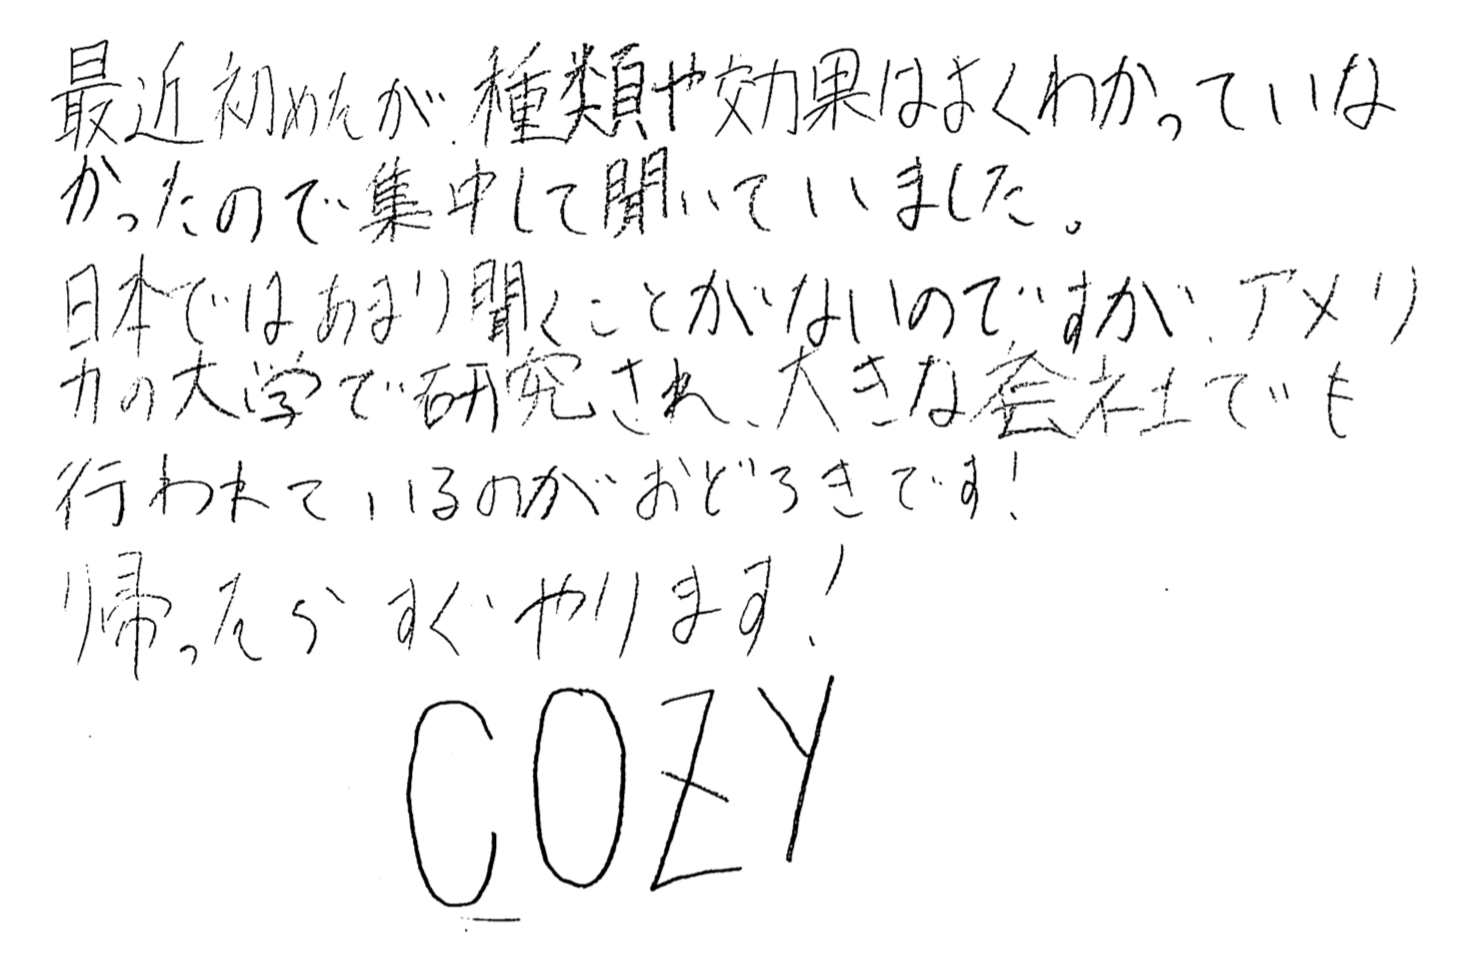 最近初めたが、種類や効果はよくわかっていな
かったので集中して聞いていました。
日本ではあまり聞くことがないのですが、アメリ
カの大学で研究され、大きな会社でも
行われているのがおどろきです!
帰ったらすぐやります!
COZY